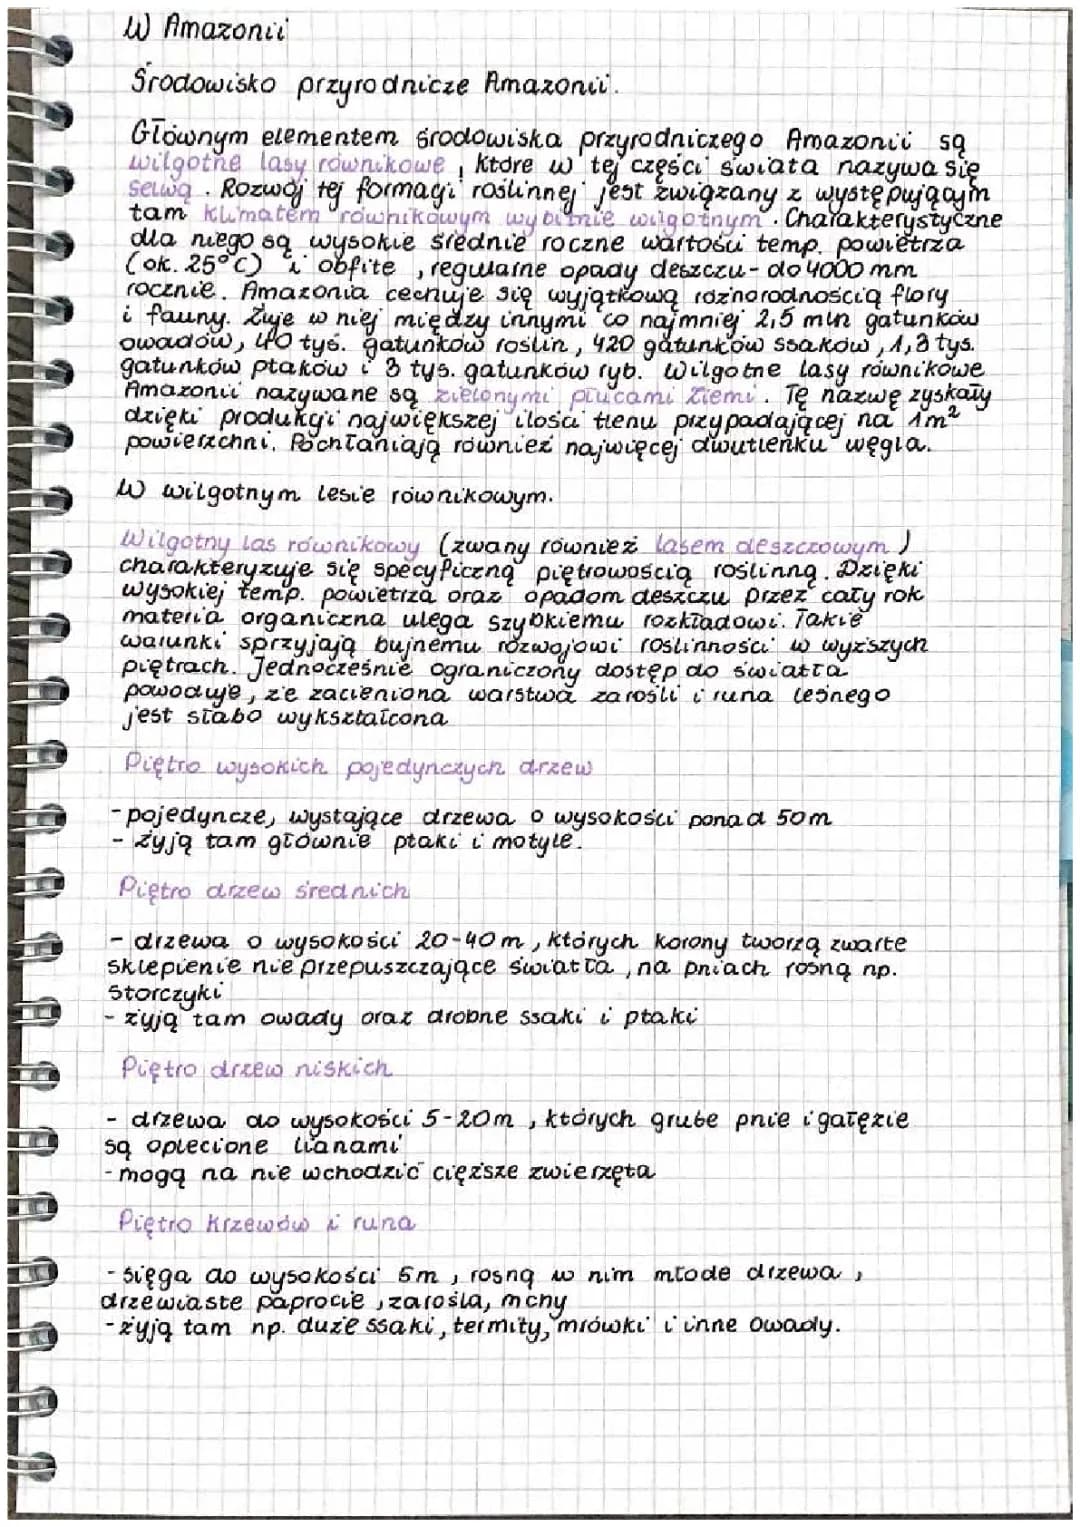 W Amazonii
Środowisko przyrodnicze Amazonii.
Głównym elementem środowiska przyrodniczego Amazonii są
wilgotne lasy równikowe, które w tej części świata nazywa się
selwą. Rozwój tej formacji roślinnej jest związany z występującym
tam klimatem równikowym wybitnie wilgotnym. Charakterystyczne
dla niego są wysokie średnie roczne wartości temp. powietrza
(ok. 25°C) i obfite, regularne opady deszczu - do 4000 mm
rocznie. Amazonia cechuje się wyjątkową różnorodnością flory
i fauny. Żyje w niej między innymi co najmniej 2,5 mln gatunków
owadów, 40 tyś. gatunków roślin, 420 gatunków ssaków, 1,3 tys.
gatunków ptaków i 3 tys. gatunków ryb. Wilgotne lasy równikowe
Amazonii nazywane są zielonymi płucami Ziemi. Tę nazwę zyskały
dzięki produkcji największej ilości tlenu przypadającej na 1m²
powierzchni. Pochłaniają również najwięcej dwutlenku węgla.
W wilgotnym lesie równikowym.
Wilgotny las równikowy (zwany również lasem deszczowym)
charakteryzuje się specyficzną piętrowością roślinną. Dzięki
wysokiej temp. powietrza oraz opadom deszczu przez cały rok
materia organiczna ulega szybkiemu rozkładowi. Takie
warunki sprzyjają bujnemu rozwojowi roślinności w wyższych
piętrach. Jednocześnie ograniczony dostęp do światła
powoduje, że zacieniona warstwa zarośli i runa leśnego
jest słabo wykształcona
Piętro wysokich pojedynczych drzew
- pojedyncze, wystające drzewa o wysokości ponad 50m
- żyją tam głównie ptaki i motyle.
Piętro drzew średnich
- drzewa o wysokości 20-40m, których korony tworzą zwarte
sklepienie nie przepuszczające światła, na pniach rosną np.
storczyki
- żyją tam owady oraz drobne ssaki i ptaki
Piętro drzew niskich
- drzewa do wysokości 5-20m, których grube pnie i gałęzie
są oplecione lianami
- mogą na nie wchodzić cięższe zwierzęta
Piętro krzewów i runa
- sięga do wysokości 5m, rosną w nim młode drzewa,
drzewiaste paprocie, zarośla, mchy
- żyją tam np. duże ssaki, termity, mrówki i inne owady.